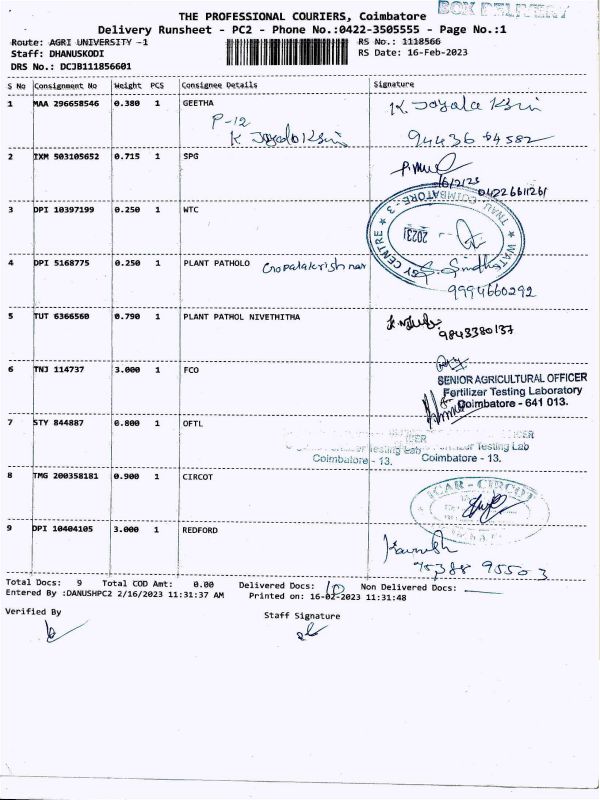 BOX DELIVERY
THE PROFESSIONAL COURIERS, Coimbatore
Delivery Runsheet - PC2 - Phone No.:0422-3505555 - Page No.:1
Route: AGRI UNIVERSITY -1 RS No.: 1118566
Staff: DHANUSKODI RS Date: 16-Feb-2023
DRS No.: DCJB111856601
S No Consignment No Weight PCS Consignee Details Signature
1 MAA 296658546 0.380 1 GEETHA
P-12
94436 04582
2 IXM 503105652 0.715 1 SPG
16/2/23
04226611261
3 DPI 10397199 0.250 1 WTC
TNAU, COIMBATORE - 3
2023
4 DPI 5168775 0.250 1 PLANT PATHOLO Gopalakrishnan
S. Sindhu
9994660292
5 TUT 6366560 0.790 1 PLANT PATHOL NIVETHITHA
9843380137
6 TNJ 114737 3.000 1 FCO
SENIOR AGRICULTURAL OFFICER
Fertilizer Testing Laboratory
Coimbatore - 641 013.
7 STY 844887 0.800 1 OFTL
Testing Lab Testing Lab
Coimbatore - 13. Coimbatore - 13.
8 TMG 200358181 0.900 1 CIRCOT
ICAR - CIRCOT
9 DPI 10404105 3.000 1 REDFORD
95503
Total Docs: 9 Total COD Amt: 0.00 Delivered Docs: 10 Non Delivered Docs:
Entered By :DANUSHPC2 2/16/2023 11:31:37 AM Printed on: 16-02-2023 11:31:48
Verified By Staff Signature